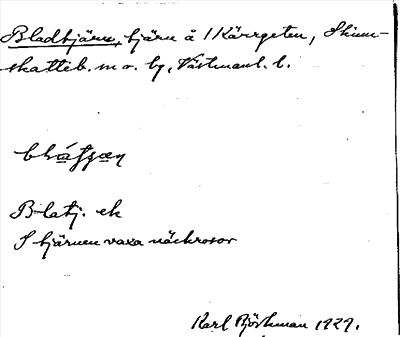 Bladtjärn, tjärn å 1 Kärrgeten, Skinn-
skatteb. m o. by, Västmanl. l.
Blatj. ek
I tjärnen växa näckrosor
Karl Björkman 1929.